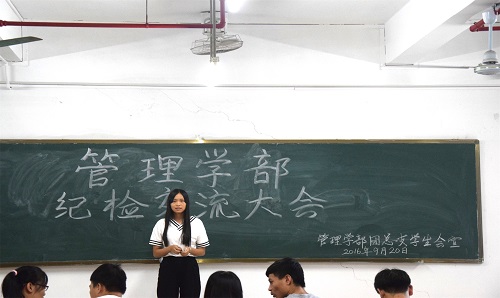 管理学部
纪检交流大会
管理学部团总支学生会宣
2016年9月20日